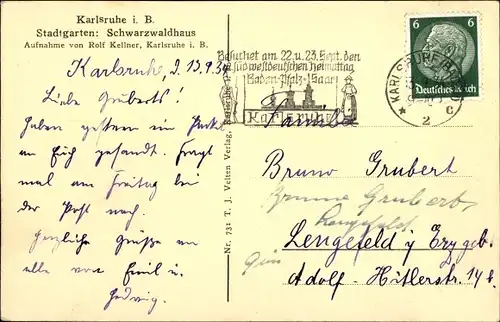 Karlsruhe i. B.
Stadtgarten: Schwarzwaldhaus
Aufnahme von Rolf Kellner, Karlsruhe i. B.
Karlsruhe, d. 13.9.34
Liebe Gruberts!
Haben gestern ein
an Euch gesandt. Fragt
mal am Freitag bei
der Post nach.
Herzliche Grüße an
alle von Emil u.
Hedwig.
Nr. 731 T. J. Velten Verlag, Karlsruhe
Besuchet am 22. u. 23. Sept. den
südwestdeutschen Heimattag
Baden-Pfalz-Saar!
Karlsruhe
KARLSRUHE (BADEN)
2
c
6 6
Deutsches Reich
Familie
Bruno Grubert
Bruno Grubert
Lengefeld
Lengefeld i/ Erzgeb.
Adolf-Hitlerstr. 14 b.